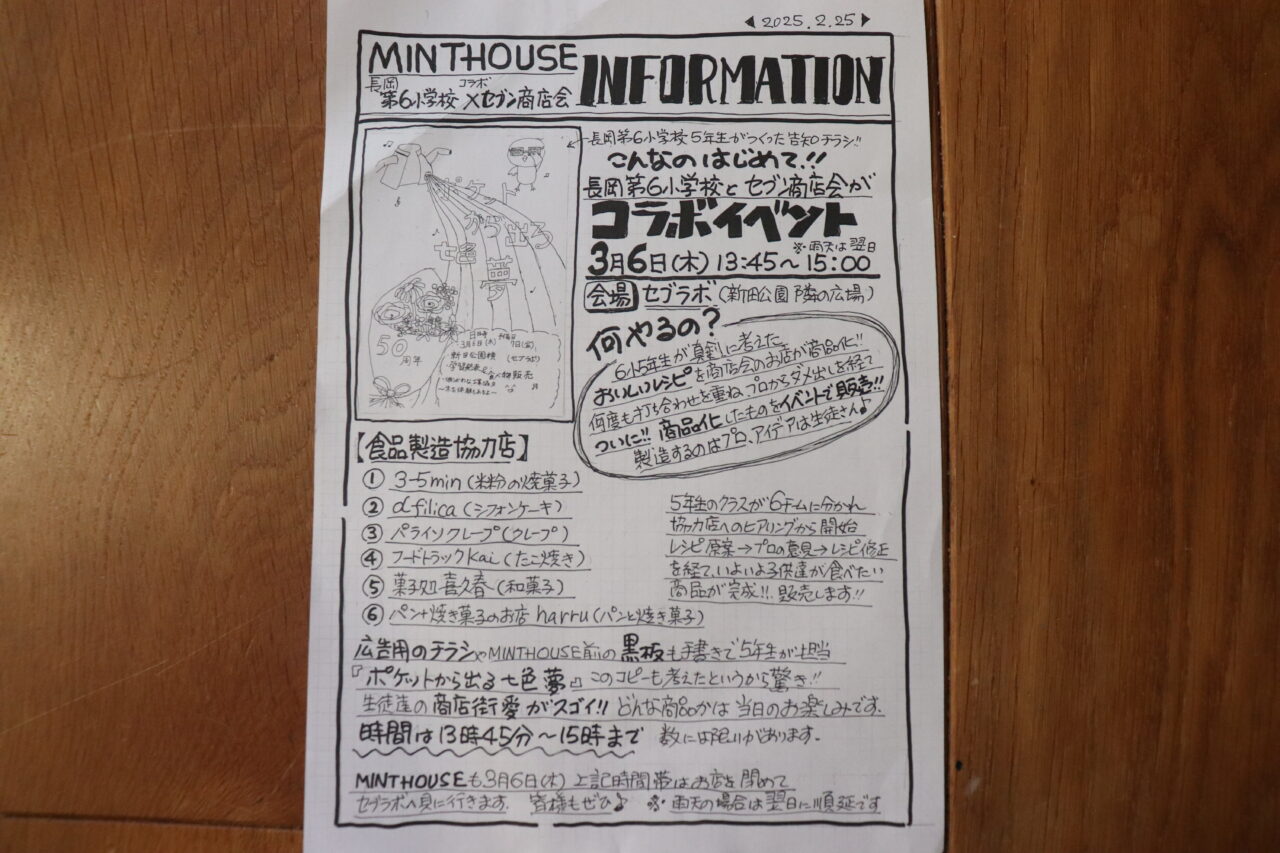 ◀2025.2.25▶
MINTHOUSE
長岡 コラボ
第6小学校×セブン商店会
INFORMATION
←長岡第6小学校5年生がつくった告知チラシ!!
こんなのはじめて!!
長岡第6小学校とセブン商店会が
コラボイベント
※雨天は翌日
3月6日(木) 13:45〜15:00
会場 セブラボ(新田公園隣の広場)
何やるの?
6小5年生が真剣に考えた
おいしいレシピを商店会のお店が商品化!!
何度も打ち合わせを重ね、プロからダメ出しを経て
ついに!! 商品化したものをイベントで販売!!
製造するのはプロ、アイデアは生徒さん♪
ポケット
から出る
七色
夢
50
周年
日時
3月6日(木)
7日(金)
(セブラボ)
【食品製造協力店】
① 3-5min(米粉の焼菓子)
② d.filica(シフォンケーキ)
③ パライソクレープ(クレープ)
④ フードトラックkai(たこ焼き)
⑤ 菓子処 喜久春(和菓子)
⑥ パン+焼き菓子のお店 harru(パンと焼き菓子)
5年生のクラスが6チームに分かれ
協力店へのヒアリングから開始
レシピ原案→プロの意見→レシピ修正
を経て、いよいよ子供達が食べたい
商品が完成!!、販売します!!
広告用のチラシやMINTHOUSE前の黒板も手書きで5年生が担当
『ポケットから出る七色夢』このコピーも考えたというから驚き!!
生徒達の商店街愛がスゴイ!! どんな商品かは当日のお楽しみです.
時間は13時45分〜15時まで 数には限りがあります.
MINTHOUSEも3月6日(木)上記時間帯はお店を閉めて
セブラボへ見に行きます. 皆様もぜひ♪ ※雨天の場合は翌日に順延です